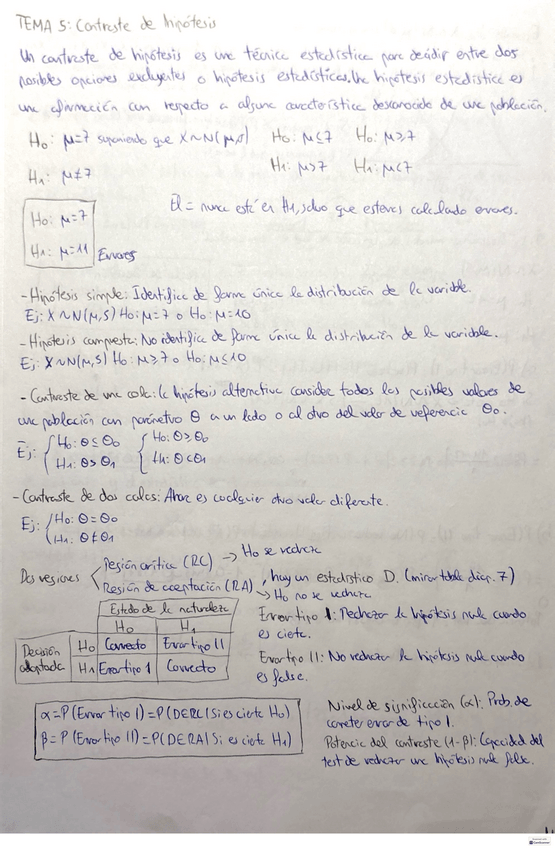 TEMA 5: Contraste de hipótesis
Un contraste de hipótesis es una técnica estadística para decidir entre dos
posibles opciones excluyentes o hipótesis estadísticas. Una hipótesis estadística es
una afirmación con respecto a alguna característica desconocida de una población.
H₀: μ=7 suponiendo que X∼N(μ,5) H₀: μ≤7 H₀: μ≥7
H₁: μ≠7 H₁: μ>7 H₁: μ<7
El = nunca está en H₁, salvo que esteves calculando errores.
H₀: μ=7
H₁: μ=11 Errores
- Hipótesis simple: Identifica de forma única la distribución de la variable.
Ej: X∼N(μ,5) H₀: μ=7 o H₀: μ=10
- Hipótesis compuesta: No identifica de forma única la distribución de la variable.
Ej: X∼N(μ,5) H₀: μ≥7 o H₀: μ≤10
- Contraste de una cola: la hipótesis alternativa considera todos los posibles valores de
una población con parámetro θ a un lado o al otro del valor de referencia θ₀.
Ej: { H₀: θ≤θ₀ { H₀: θ≥θ₀
H₁: θ>θ₁ H₁: θ<θ₁
- Contraste de dos colas: Ahora es cualquier otro valor diferente.
Ej: { H₀: θ=θ₀
H₁: θ≠θ₁
Región crítica (RC) → H₀ se rechaza
Dos regiones
Región de aceptación (RA), hay un estadístico D. (mirar tabla diap. 7)
→ H₀ no se rechaza
Estado de la naturaleza
H₀ H₁
Decisión adoptada H₀ Correcto Error tipo II
H₁ Error tipo I Correcto
Error tipo I: Rechazar la hipótesis nula cuando
es cierta.
Error tipo II: No rechazar la hipótesis nula cuando
es falsa.
α=P(Error tipo I)=P(DERC/Si es cierta H₀)
β=P(Error tipo II)=P(DERA/Si es cierta H₁)
Nivel de significación (α): Prob. de
cometer error de tipo I.
Potencia del contraste (1-β): Capacidad del
test de rechazar una hipótesis nula falsa.